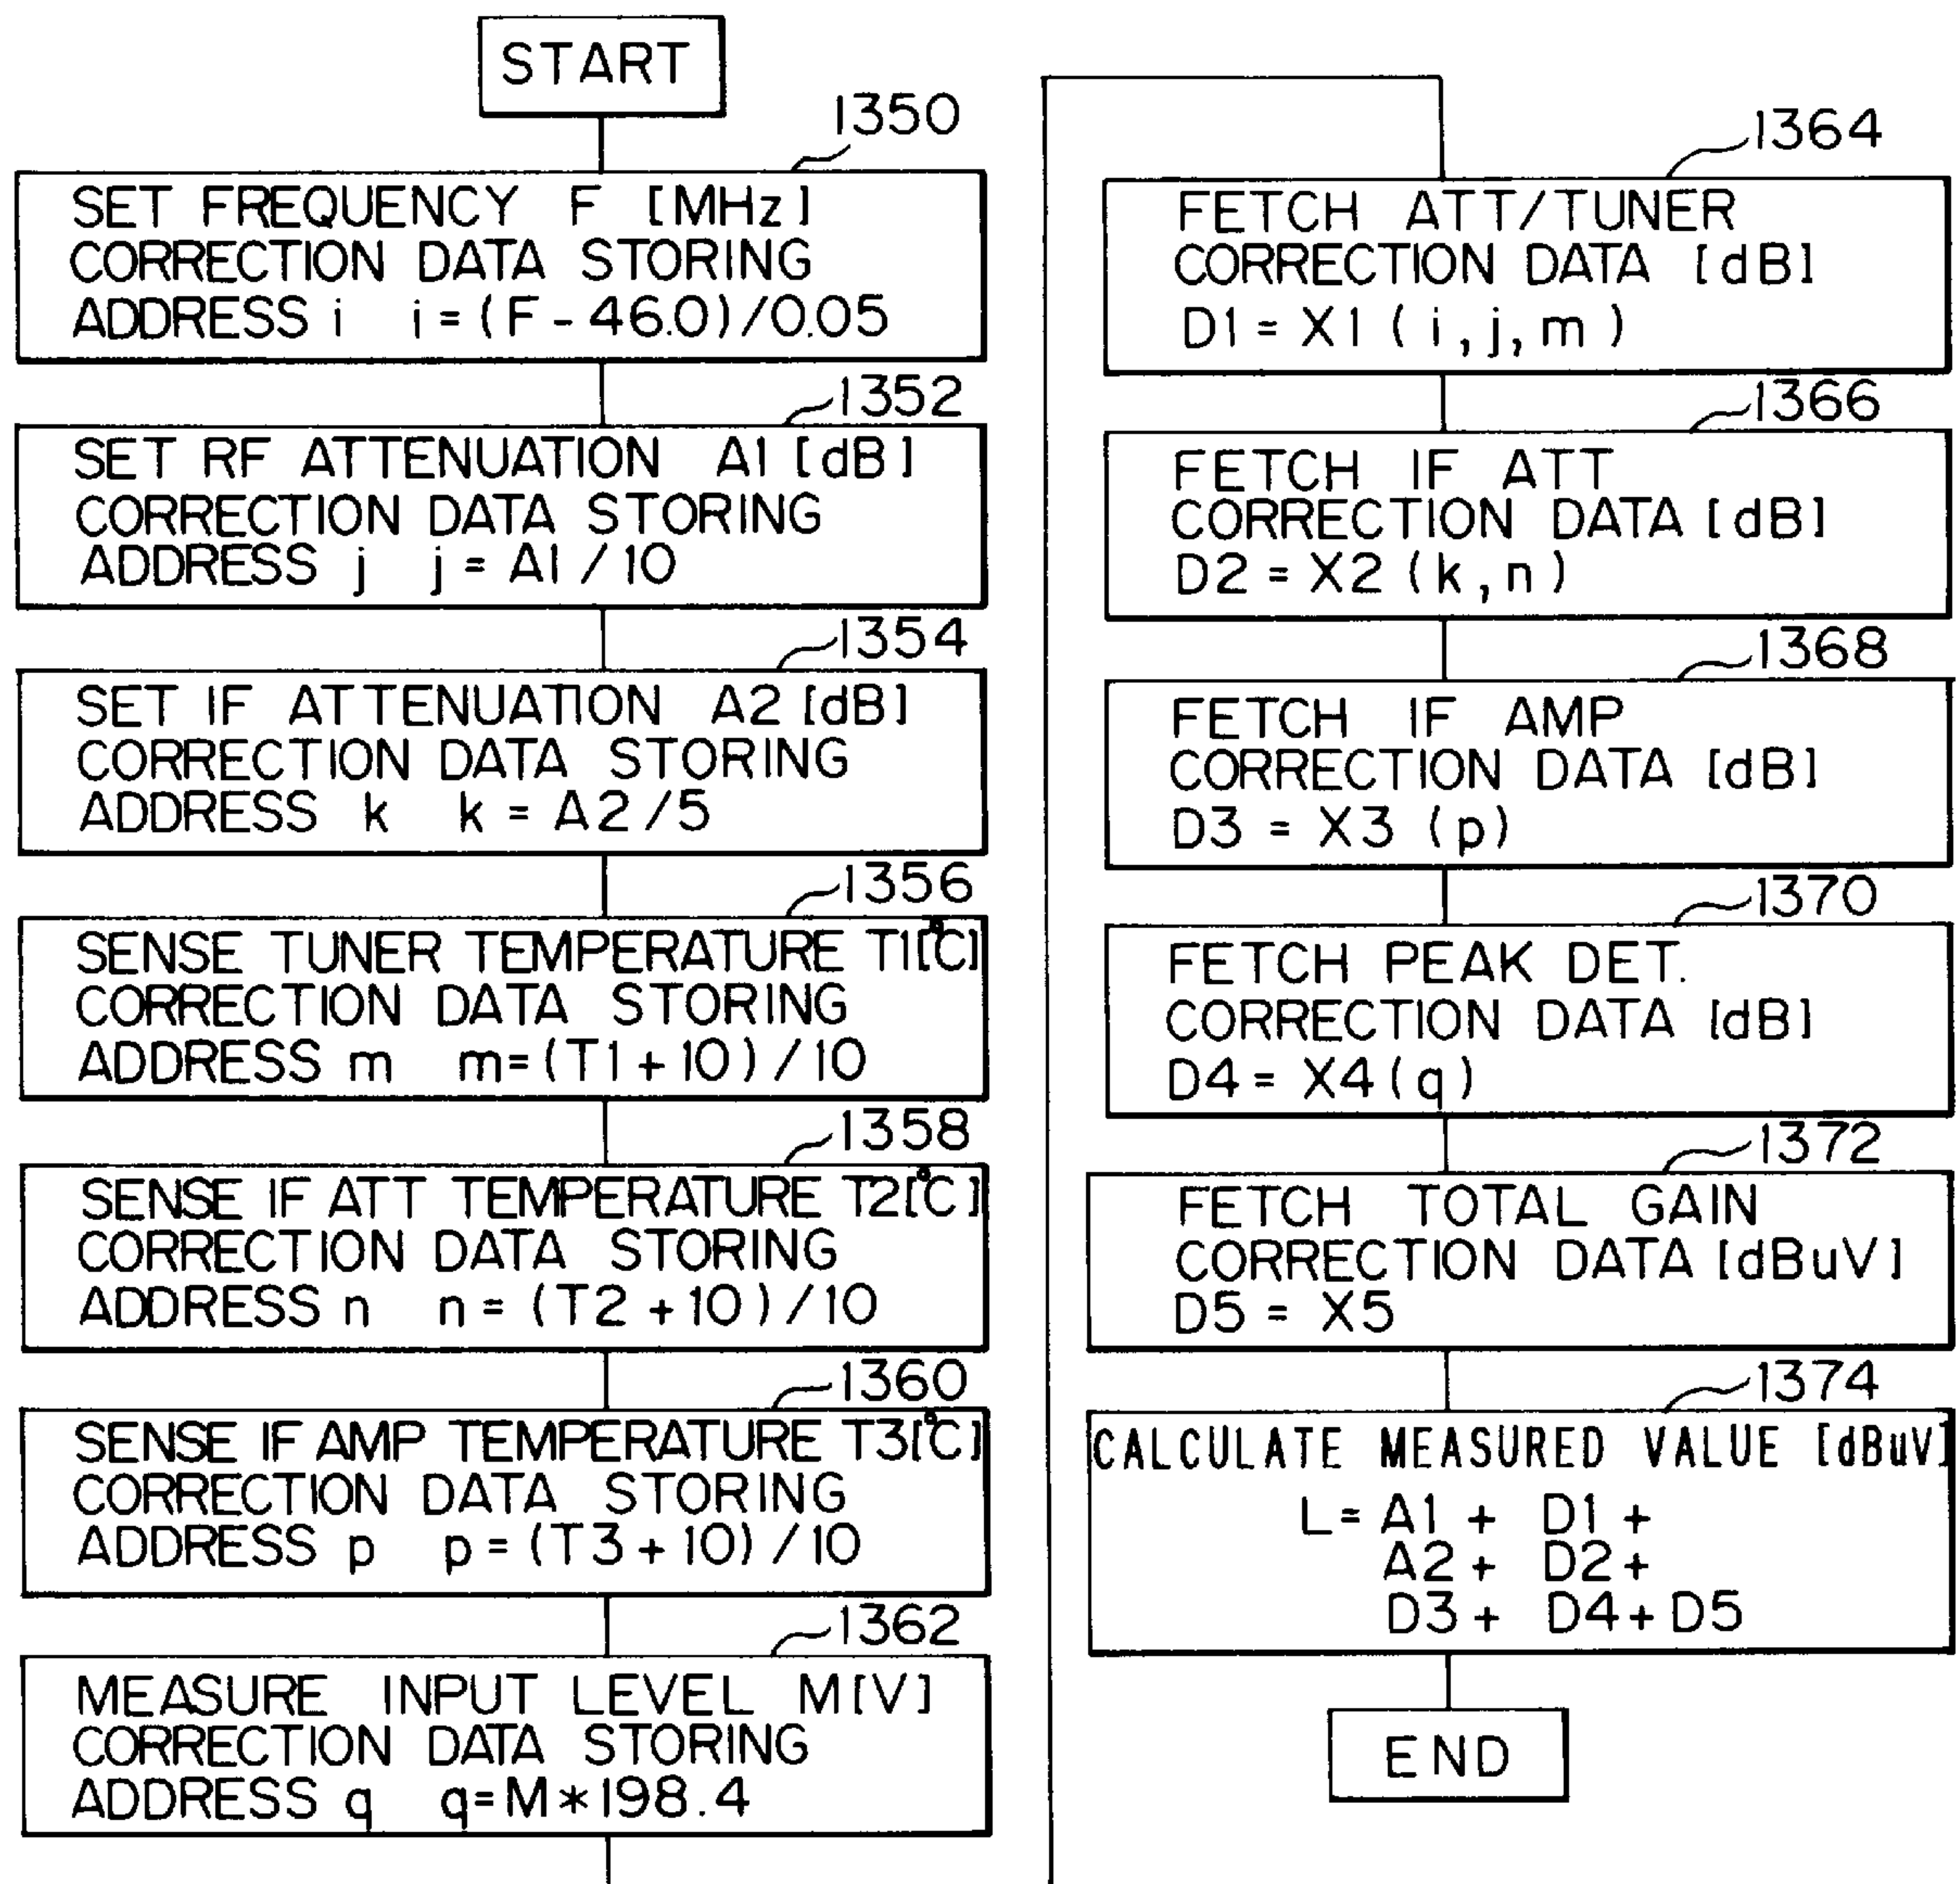 START
1350
SET FREQUENCY F [MHz]
CORRECTION DATA STORING
ADDRESS i i=(F-46.0)/0.05
1352
SET RF ATTENUATION A1[dB]
CORRECTION DATA STORING
ADDRESS j j=A1/10
1354
SET IF ATTENUATION A2[dB]
CORRECTION DATA STORING
ADDRESS k k=A2/5
1356
SENSE TUNER TEMPERATURE T1[°C]
CORRECTION DATA STORING
ADDRESS m m=(T1+10)/10
1358
SENSE IF ATT TEMPERATURE T2[°C]
CORRECTION DATA STORING
ADDRESS n n=(T2+10)/10
1360
SENSE IF AMP TEMPERATURE T3[°C]
CORRECTION DATA STORING
ADDRESS p p=(T3+10)/10
1362
MEASURE INPUT LEVEL M[V]
CORRECTION DATA STORING
ADDRESS q q=M*198.4
1364
FETCH ATT/TUNER
CORRECTION DATA [dB]
D1=X1(i,j,m)
1366
FETCH IF ATT
CORRECTION DATA [dB]
D2=X2(k,n)
1368
FETCH IF AMP
CORRECTION DATA [dB]
D3=X3(p)
1370
FETCH PEAK DET.
CORRECTION DATA [dB]
D4=X4(q)
1372
FETCH TOTAL GAIN
CORRECTION DATA [dBuV]
D5=X5
1374
CALCULATE MEASURED VALUE [dBuV]
L=A1+ D1+
A2+ D2+
D3+ D4+D5
END